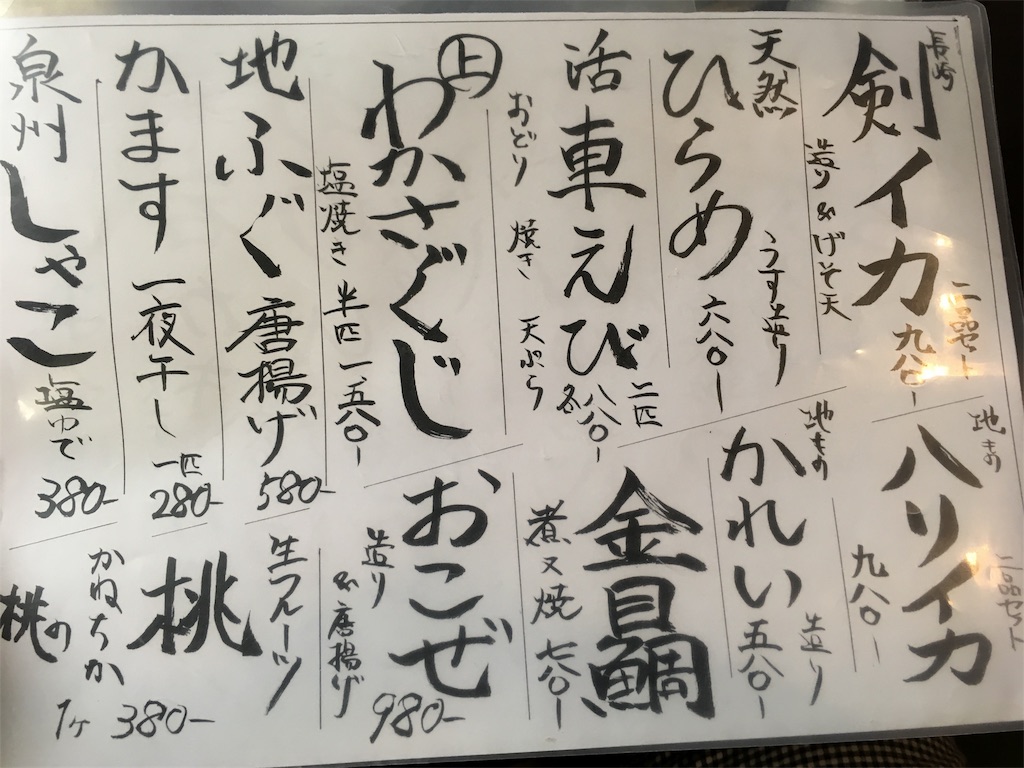 長崎
剣イカ
造り&げそ天
二品セット
九八〇-
地もの
ハリイカ
二品セット
九八〇-
天然
ひらめ
うす造り
六八〇-
地もの
かれい
造り
五八〇-
活車えび
二匹
八八〇-
各
おどり 焼き 天ぷら
金目鯛
煮又焼 七八〇-
上
わかさぐじ
塩焼き 半匹 一、五八〇-
おこぜ
造り
&唐揚げ
980-
地ふぐ唐揚げ
580-
生フルーツ
桃
かねちか
桃の
1ヶ 380-
かます一夜干し
一匹
280-
泉州しゃこ
塩ゆで
380-